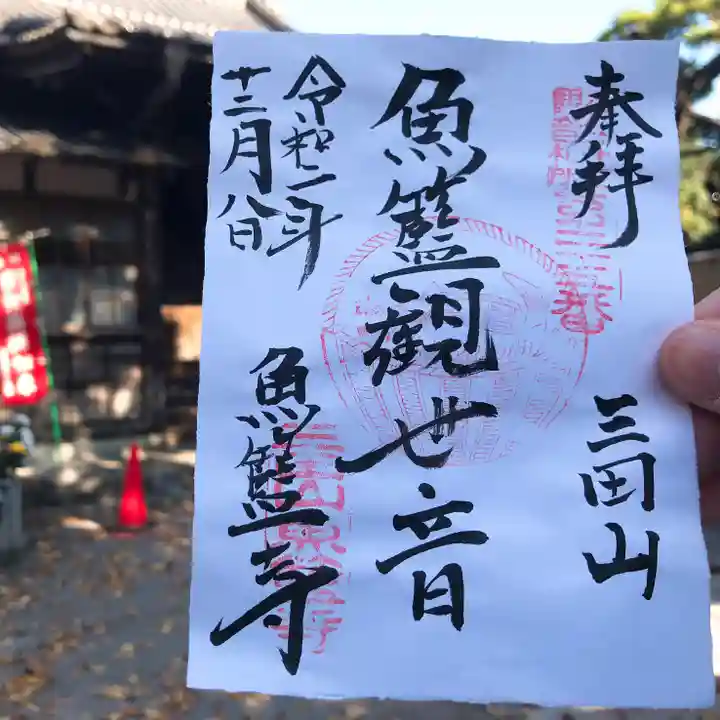 奉拝
三田山
魚籃觀世音
令和二年
十二月八日
魚籃寺